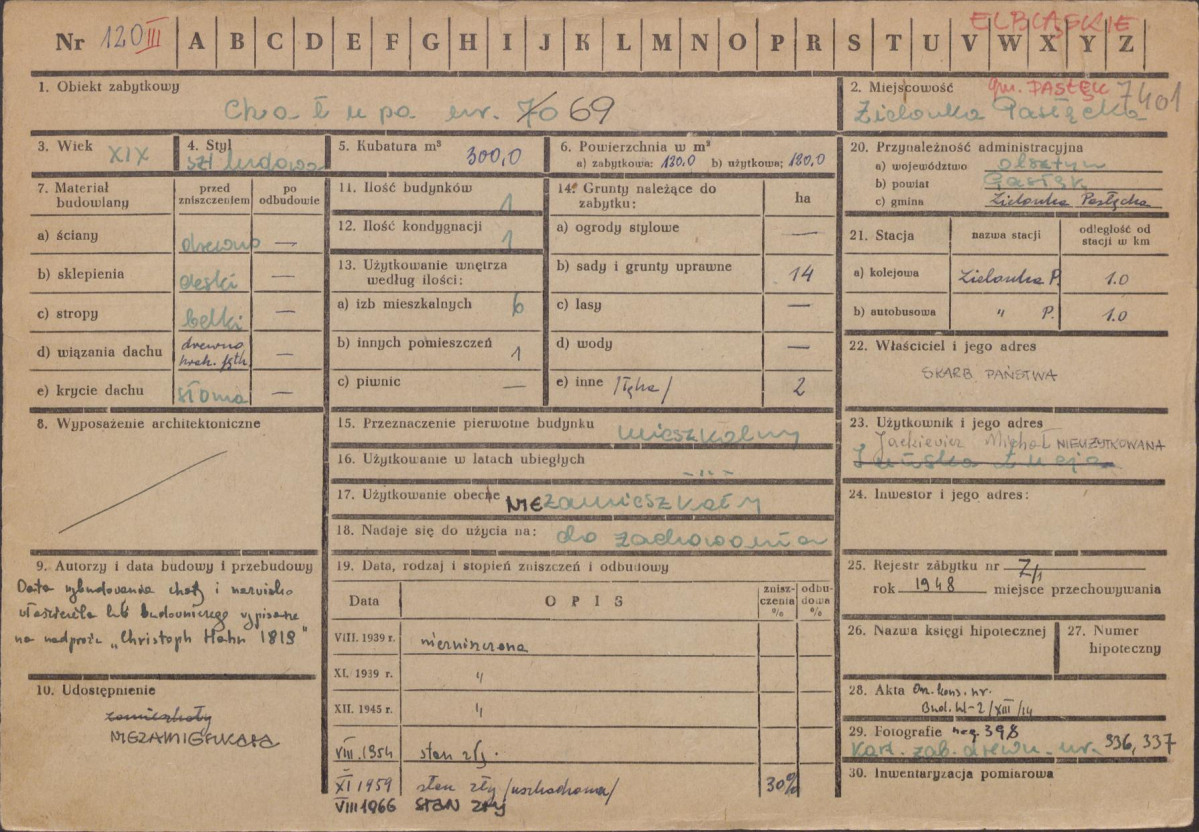 ELBLĄSKIE
Nr 120 III A B C D E F G H I J K L M N O P R S T U V W X Y Z
1. Obiekt zabytkowy
Chałupa nr. 70 69
2. Miejscowość gm. PASŁĘK 7401
Zielonka Pasłęcka
3. Wiek XIX
4. Styl
szt ludowa
5. Kubatura m³ 300,0
6. Powierzchnia w m²
a) zabytkowa: 120,0 b) użytkowa; 120,0
20. Przynależność administracyjna
a) województwo olsztyn
b) powiat Pasłęk
c) gmina Zielonka Pasłęcka
7. Materiał budowlany
przed zniszczeniem
po odbudowie
a) ściany drewno —
b) sklepienia deski
c) stropy belki —
d) wiązania dachu drewno —
e) krycie dachu słoma —
11. Ilość budynków 1
12. Ilość kondygnacji 1
13. Użytkowanie wnętrza
według ilości:
a) izb mieszkalnych 6
b) innych pomieszczeń 1
c) piwnic —
14. Grunty należące do
zabytku: ha
a) ogrody stylowe —
b) sady i grunty uprawne 14
c) lasy —
d) wody —
e) inne /łąka/ 2
21. Stacja nazwa stacji odległość od
stacji w km
a) kolejowa Zielonka P. 1.0
b) autobusowa " P. 1.0
22. Właściciel i jego adres
SKARB PAŃSTWA
8. Wyposażenie architektoniczne
15. Przeznaczenie pierwotne budynku mieszkalny
16. Użytkowanie w latach ubiegłych
- " -
17. Użytkowanie obecne NIEzamieszkały
18. Nadaje się do użycia na: do zachowania
23. Użytkownik i jego adres
Jackiewicz Michał NIEUŻYTKOWANA
24. Inwestor i jego adres:
9. Autorzy i data budowy i przebudowy
Data wybudowania chaty i nazwisko
właściciela lub budowniczego wypisane
na nadprożu „Christoph Hahn 1819"
10. Udostępnienie
zamieszkały
NIEZAMIESZKAŁA
19. Data, rodzaj i stopień zniszczeń i odbudowy
Data OPIS znisz-
czenia
%
odbu-
dowa
%
VIII. 1939 r. niezniszczona
XI. 1939 r. "
XII. 1945 r. "
VIII. 1954 stan zły.
XI 1959 stan zły 30%
VIII 1966 STAN ZŁY
25. Rejestr zabytku nr Z/1
rok 1948 miejsce przechowywania
26. Nazwa księgi hipotecznej
27. Numer
hipoteczny
28. Akta Om. kons. nr.
Bud. W-2/XIII/14
29. Fotografie neg 398
Kart. zab. drewn. nr. 336, 337
30. Inwentaryzacja pomiarowa